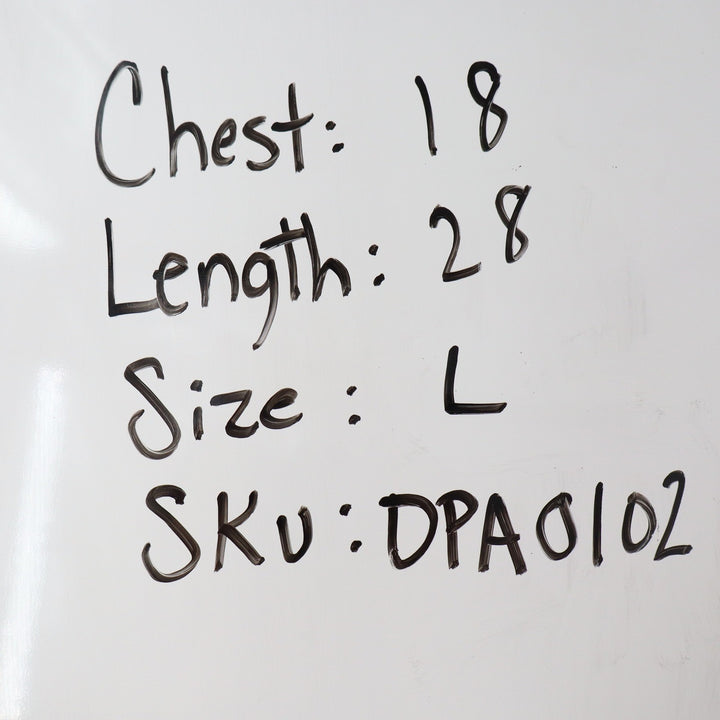 Chest: 18
Length: 28
Size: L
SKU: DPA0102